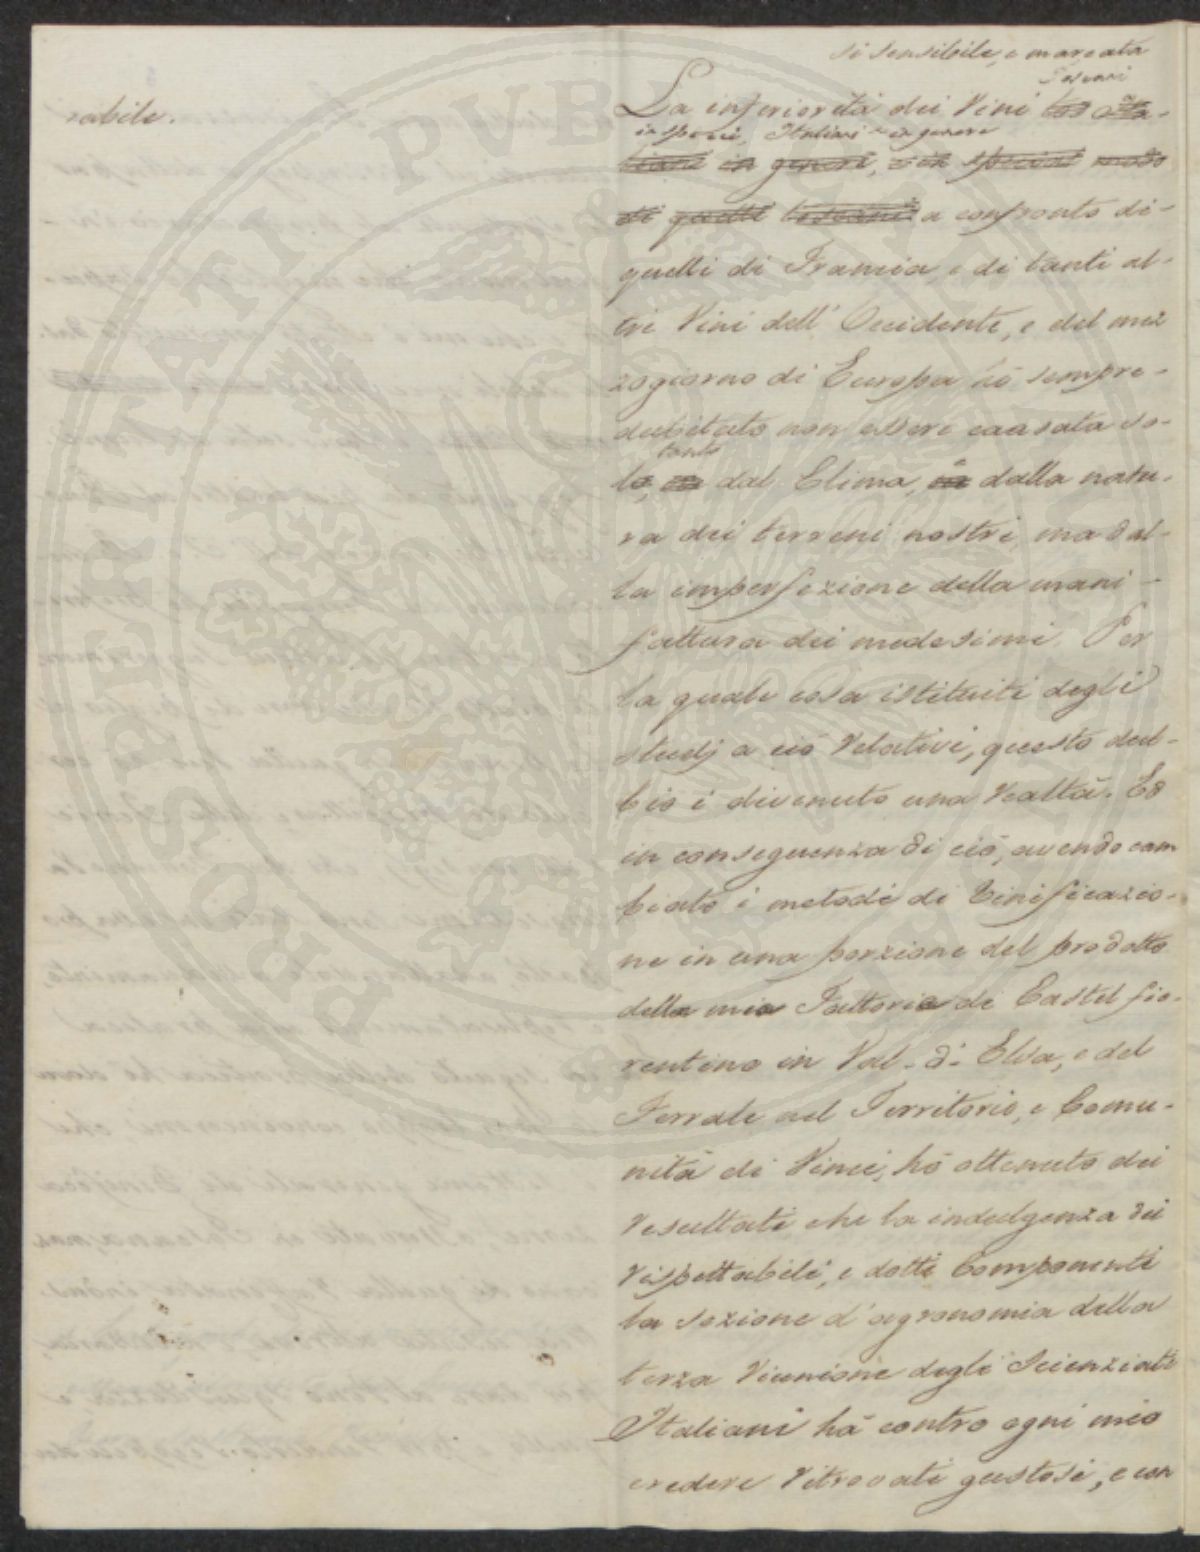 rabile.
si sensibile, e marcata
Toscani
La inferiorità dei Vini
in specie, Italiani e in genere
liani in genere, e in special modo
di quelli toscani a confronto di
quelli di Francia, e di tanti al-
tri Vini dell' Occidente, e del mez
zogiorno di Europa hò sempre
dubitato non essere causata so-
tanto
lo, dal Clima, e dalla natu-
ra dei terreni nostri, ma dal-
la imperfezione della mani-
fattura dei medesimi. Per
la quale cosa istituiti degli
studj a ciò relativi, questo dub-
bio è divenuto una realtà. Ed
in conseguenza di ciò, avendo cam
biato i metodi di Vinificazio-
ne in una porzione del prodotto
della mia Fattoria di Castel fio-
rentino in Val-d'-Elsa, e del
Ferrale nel Territorio, e Comu-
nità di Vinci, hò ottenuto dei
resultati che la indulgenza dei
rispettabili, e dotti Componenti
la sezione d'agronomia della
terza riunione degli Scienziati
Italiani hà contro ogni mio
credere ritrovati gustosi, e con
PROSPERITATI PUBLICAE